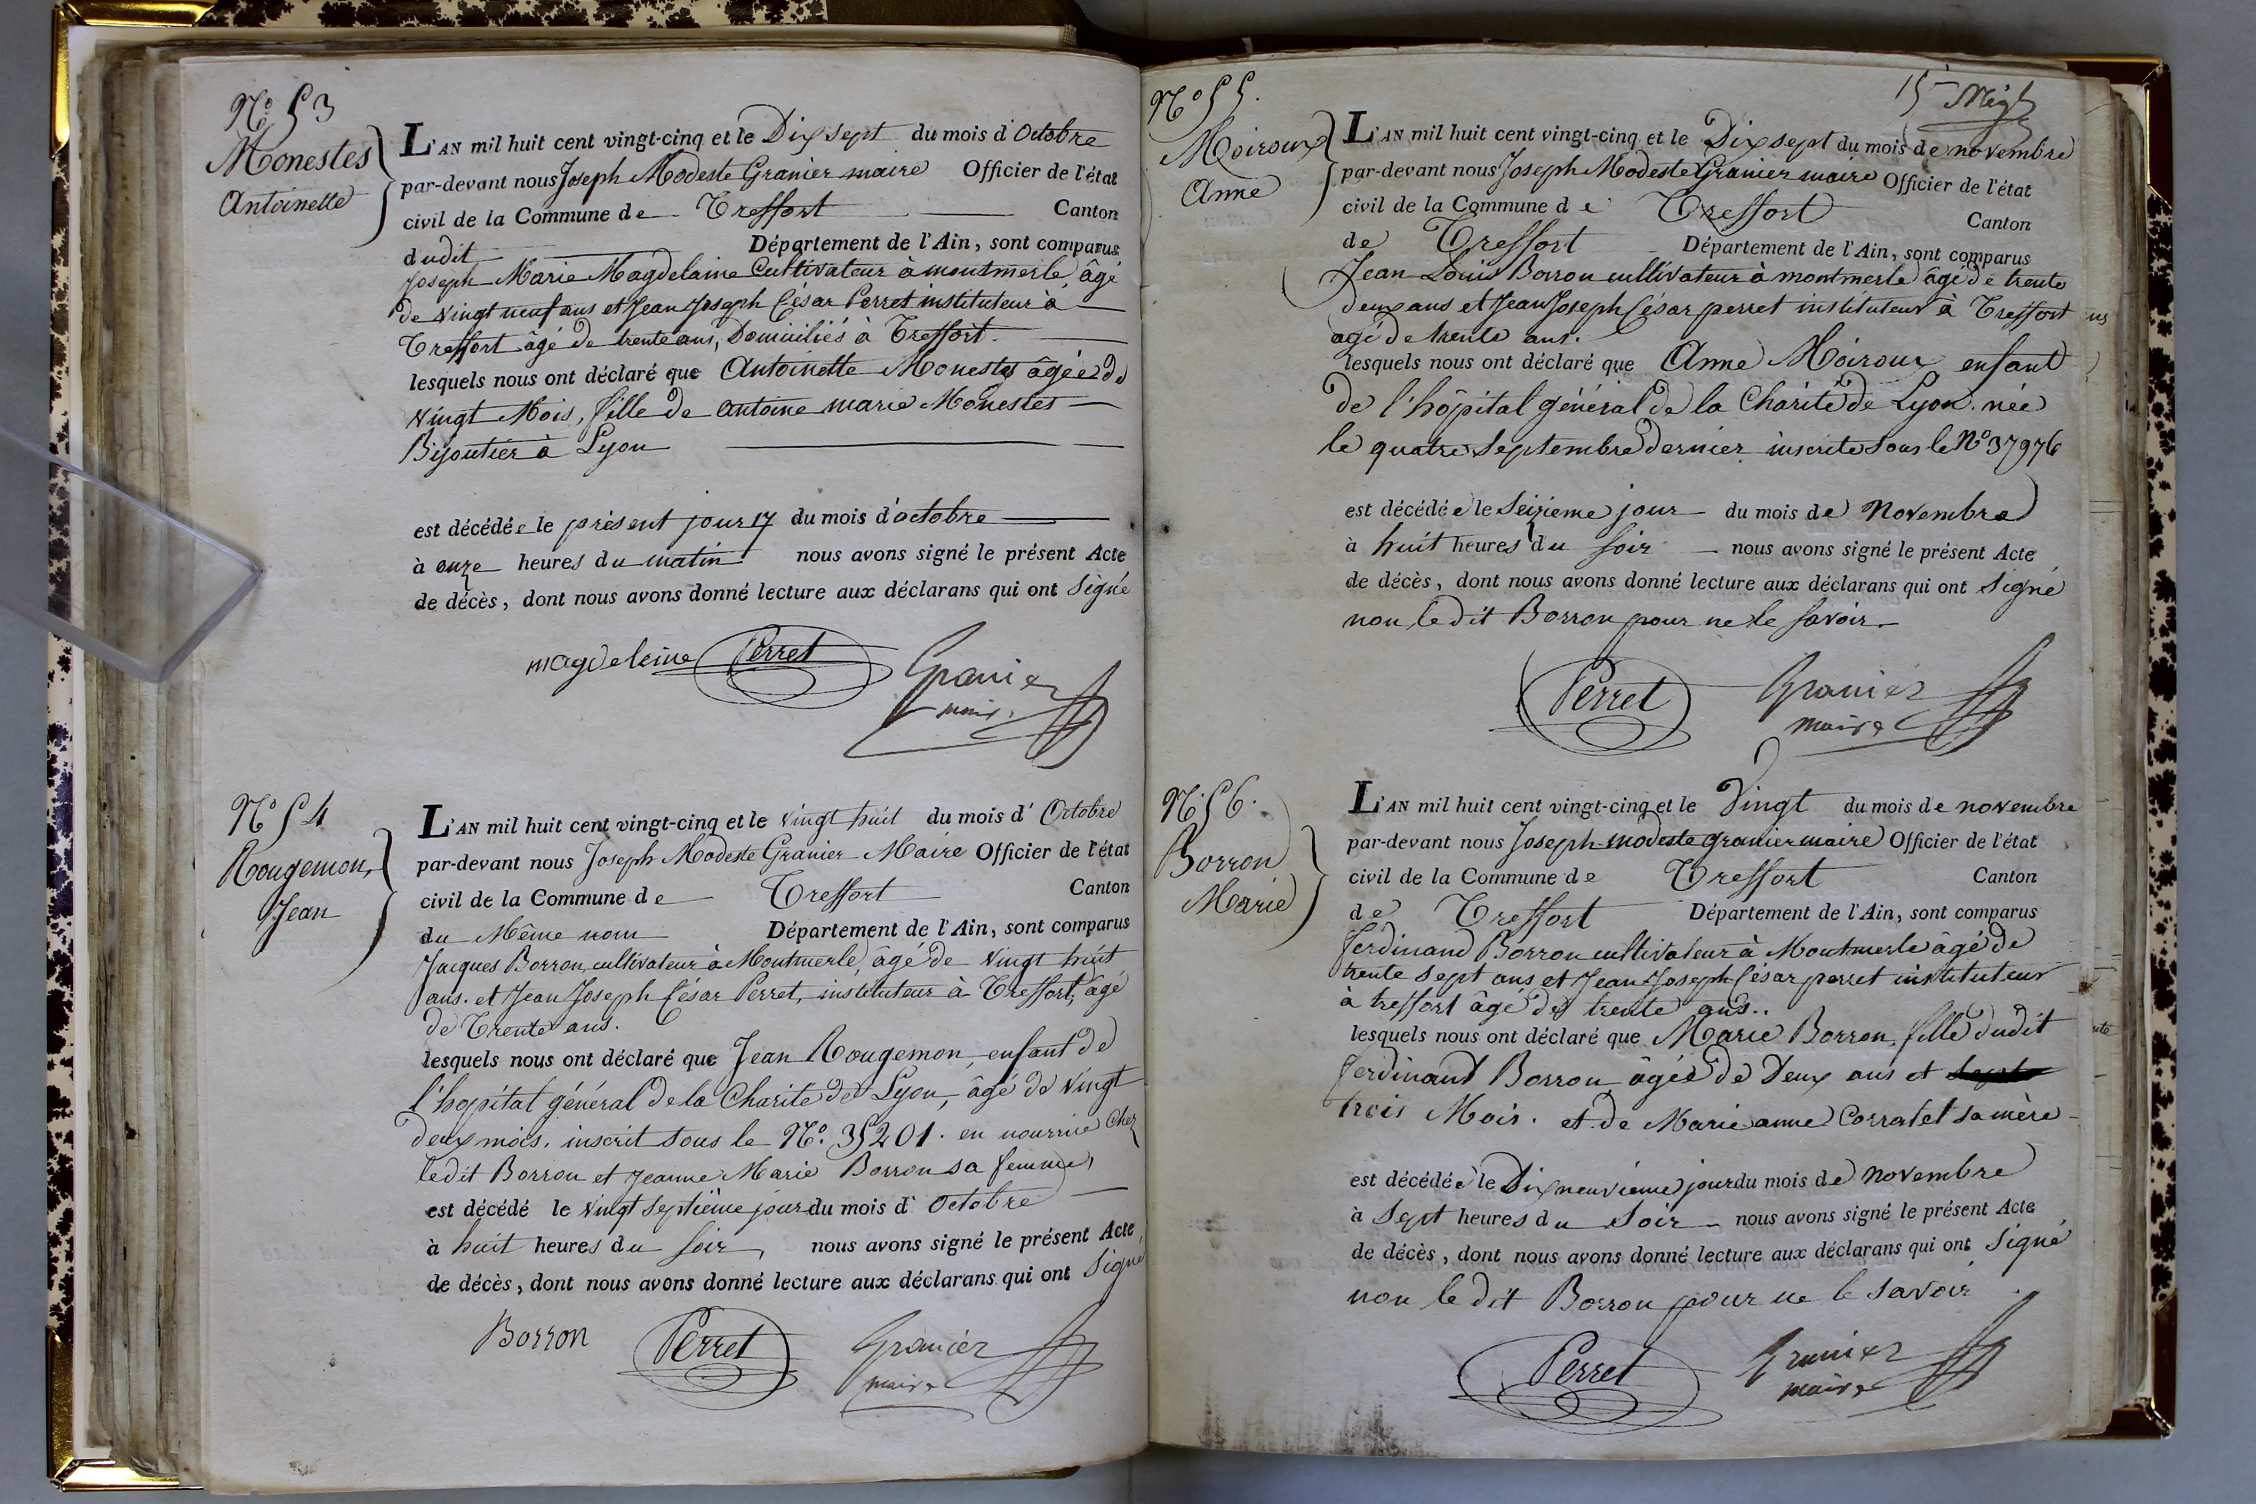 N.° 53
Monestes
Antoinette
L'AN mil huit cent vingt-cinq et le Dix sept du mois d'Octobre
par-devant nous Joseph Modeste Granier maire Officier de l'état
civil de la Commune de Treffort Canton
dudit Département de l'Ain, sont comparus
Joseph Marie Magdelaine Cultivateur à montmerle, âgé
de vingt neuf ans et Jean Joseph César Perret instituteur à
Treffort âgé de trente ans, Domiciliés à Treffort.
lesquels nous ont déclaré que Antoinette Monestes âgée de
vingt Mois, fille de antoine marie Monestes
Bijoutier à Lyon
est décédée le présent jour 17 du mois d'octobre
à onze heures du matin nous avons signé le présent Acte
de décès, dont nous avons donné lecture aux déclarans qui ont signé
magdeleine Perret Granier
maire
N.° 54
Rougemon,
Jean
L'AN mil huit cent vingt-cinq et le vingt huit du mois d'Octobre
par-devant nous Joseph Modeste Granier Maire Officier de l'état
civil de la Commune de Treffort Canton
du Même nom Département de l'Ain, sont comparus
Jacques Borron, cultivateur à Montmerle, âgé de vingt huit
ans. et Jean Joseph César Perret, instituteur à Treffort, âgé
de Trente ans.
lesquels nous ont déclaré que Jean Rougemon, enfant de
l'hopital général de la Charité de Lyon, âgé de vingt
deux mois, inscrit sous le N.° 35201. en nourrice chez
ledit Borron et Jeanne Marie Borron sa femme,
est décédé le vingt septième jour du mois d'Octobre
à huit heures du soir, nous avons signé le présent Acte
de décès, dont nous avons donné lecture aux déclarans qui ont signé
Borron Perret Granier
maire
N.° 55.
Moiroux
Anne
L'AN mil huit cent vingt-cinq et le Dix sept du mois de novembre
par-devant nous Joseph Modeste Granier maire Officier de l'état
civil de la Commune de Treffort Canton
de Treffort Département de l'Ain, sont comparus
Jean Louis Borron cultivateur à montmerle âgé de trente
deux ans et Jean Joseph César perret instituteur à Treffort
agé de trente ans.
lesquels nous ont déclaré que Anne Moiroux enfant
de l'hôpital général de la Charité de Lyon. née
le quatre Septembre dernier inscrite sous le N.° 37976
est décédée le Seizieme jour du mois de Novembre
à huit heures du soir nous avons signé le présent Acte
de décès, dont nous avons donné lecture aux déclarans qui ont signé
non le dit Borron pour ne le savoir.
Perret Granier
maire
N.° 56.
Borron
Marie
L'AN mil huit cent vingt-cinq et le Vingt du mois de novembre
par-devant nous Joseph modeste granier maire Officier de l'état
civil de la Commune de Treffort Canton
de Treffort Département de l'Ain, sont comparus
ferdinand Borron cultivateur à Montmerle âgé de
trente sept ans et Jean Joseph César perret instituteur
à treffort âgé de trente ans..
lesquels nous ont déclaré que Marie Borron, fille dudit
ferdinand Borron âgée de Deux ans et sept
trois Mois. et de Marie anne Corratet sa mère
est décédée le Dix neuvieme jour du mois de Novembre
à Sept heures du soir nous avons signé le présent Acte
de décès, dont nous avons donné lecture aux déclarans qui ont signé
non le dit Borron pour ne le savoir
Perret Granier
maire